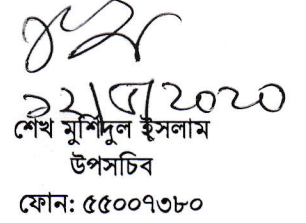 ১২/৫/২০২০
শেখ মুর্শিদুল ইসলাম
উপসচিব
ফোন: ৫৫০০৭৩৮০